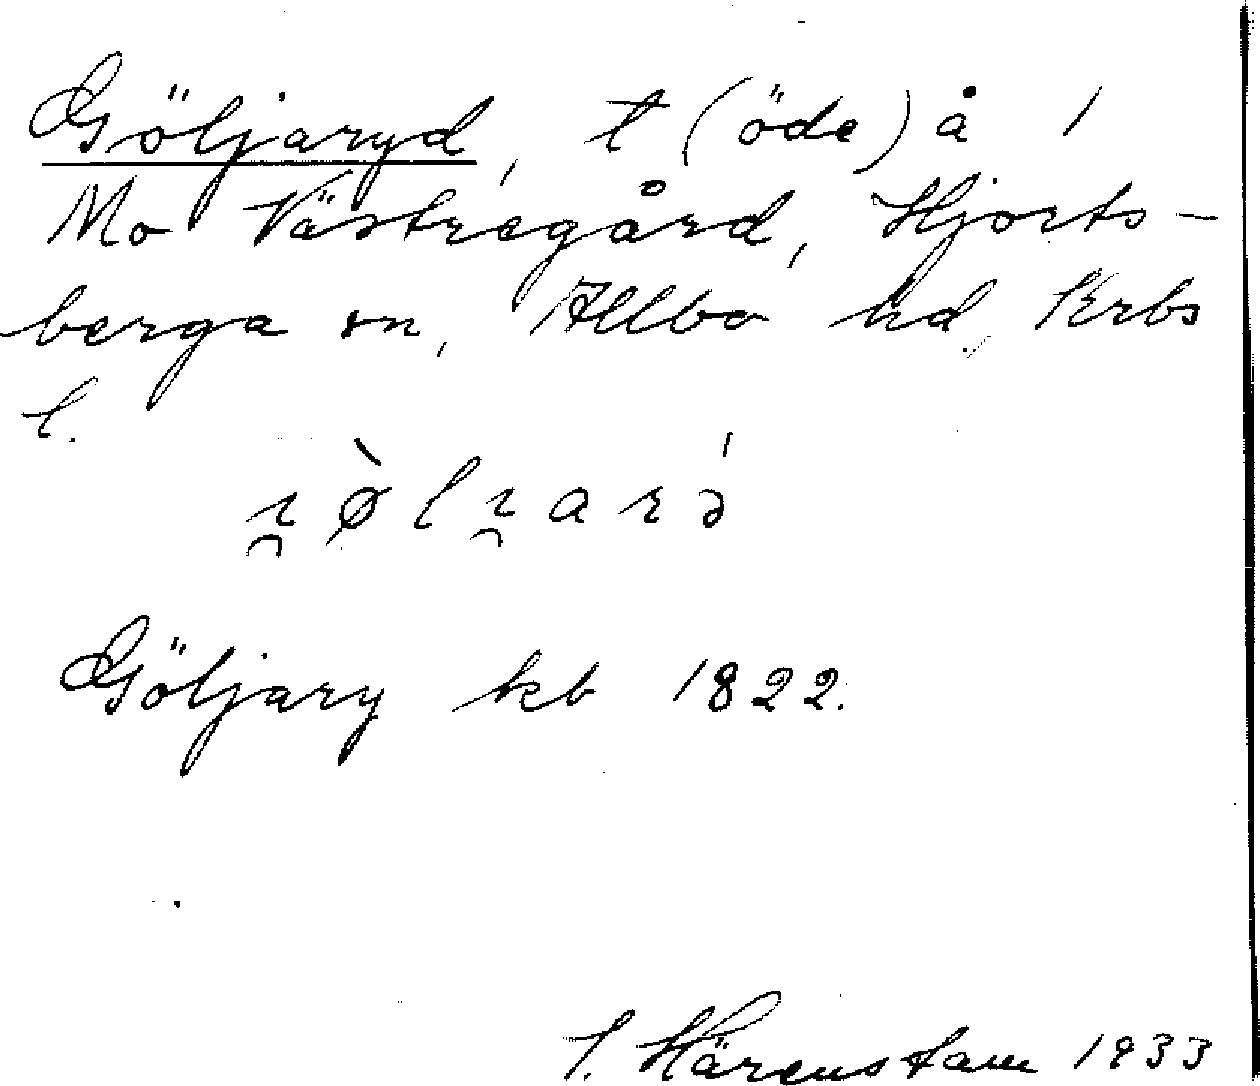 Göljaryd, t (öde) å 1
Mo Västregård, Hjorts-
berga sn, Allbo hd, Krbs
l.
Göljary kb 1822.
J. Härenstam 1933